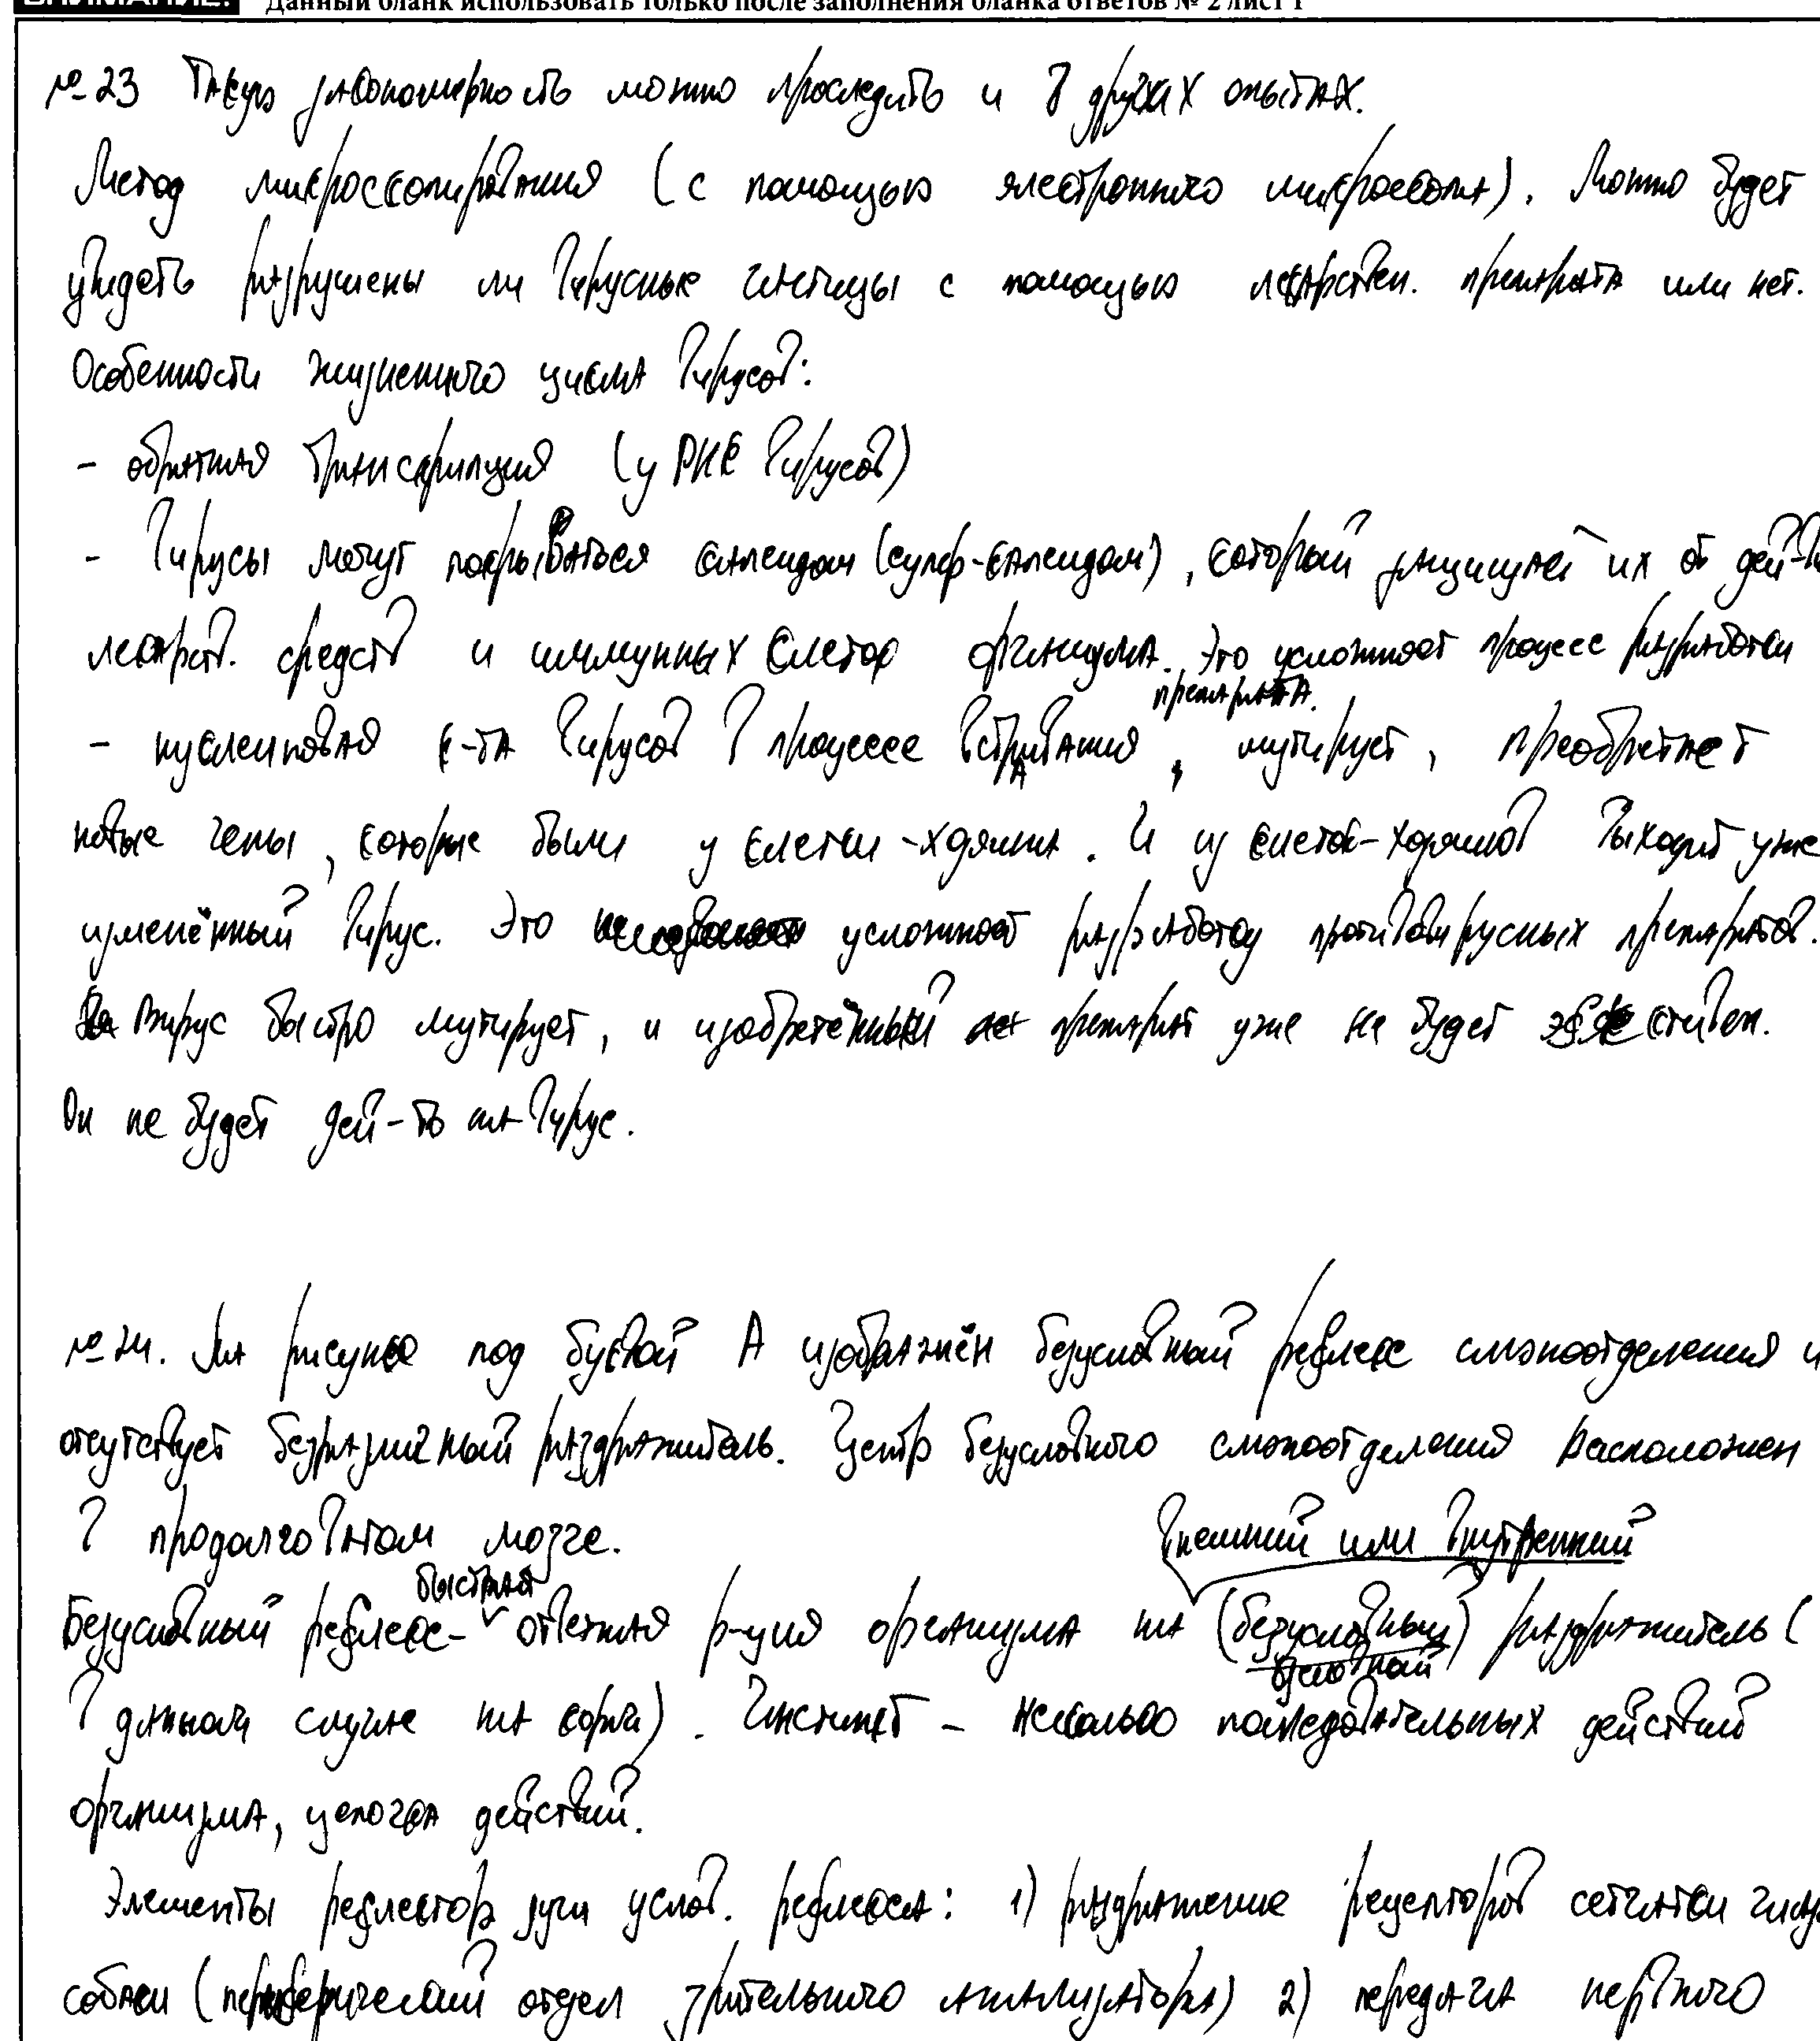 ВНИМАНИЕ! Данный бланк использовать только после заполнения бланка ответов № 2 лист 1
№ 23 Такую закономерность можно проследить и в других опытах.
Метод микроскопирования (с помощью электронного микроскопа). Можно будет
увидеть разрушены ли вирусные частицы с помощью лекарствен. препарата или нет.
Особенности жизненного цикла вирусов:
- обратная транскрипция (у РНК вирусов)
- Вирусы могут покрываться капсидом (супер-капсидом), который защищает их от дей-
лекарств. средств и иммунных клеток организма. Это усложняет процесс разработки
препарата.
- нуклеиновая к-та вирусов в процессе встраивания, мутирует, преобретает
новые гены, которые были у клетки-хозяина. И из клеток-хозяинов выходит уже
изменённый вирус. Это усложняет разработку противовирусных препаратов.
Вирус быстро мутирует, и изобретённый препарат уже не будет эффективен.
Он не будет дей-ть на вирус.
№ 24. На рисунке под буквой А изображён безусловный рефлекс слюноотделения и
отсутствует безразличный раздражитель. Центр безусловного слюноотделения расположен
в продолговатом мозге.
внешний или внутренний
быстрая
Безусловный рефлекс- ответная р-ция организма на (безусловный) раздражитель (
условный
в данном случае на корм). Инстинкт - несколько последовательных действий
организма, цепочка действий.
Элементы рефлектор дуги услов. рефлекса: 1) раздражение рецепторов сетчатки глаза
собаки (периферический отдел зрительного анализатора) 2) передача нервного